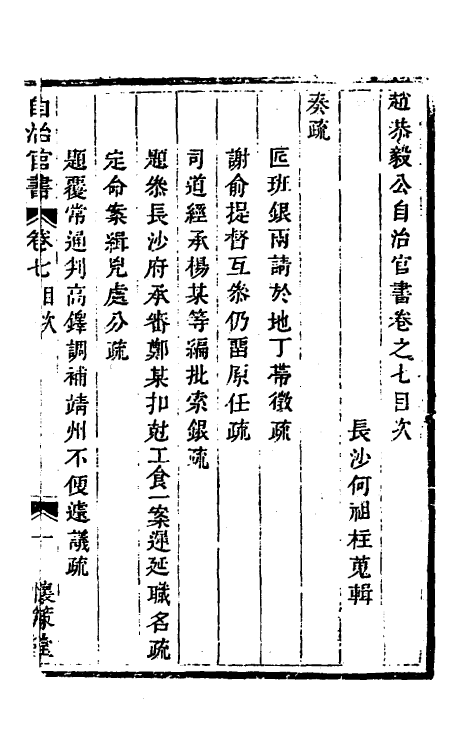 趙恭毅公自治官書卷之七目次
長沙何祖柱蒐輯
奏疏
匠班銀兩請於地丁帶徵疏
謝俞提督互叅仍畱原任疏
司道經承楊某等編批索銀疏
題叅長沙府承審鄭某扣尅工食一案遲延職名疏
定命案緝兇處分疏
題覆常通判高鐸調補靖州不便遠議疏
自治官書 卷七目次 一 懷策堂